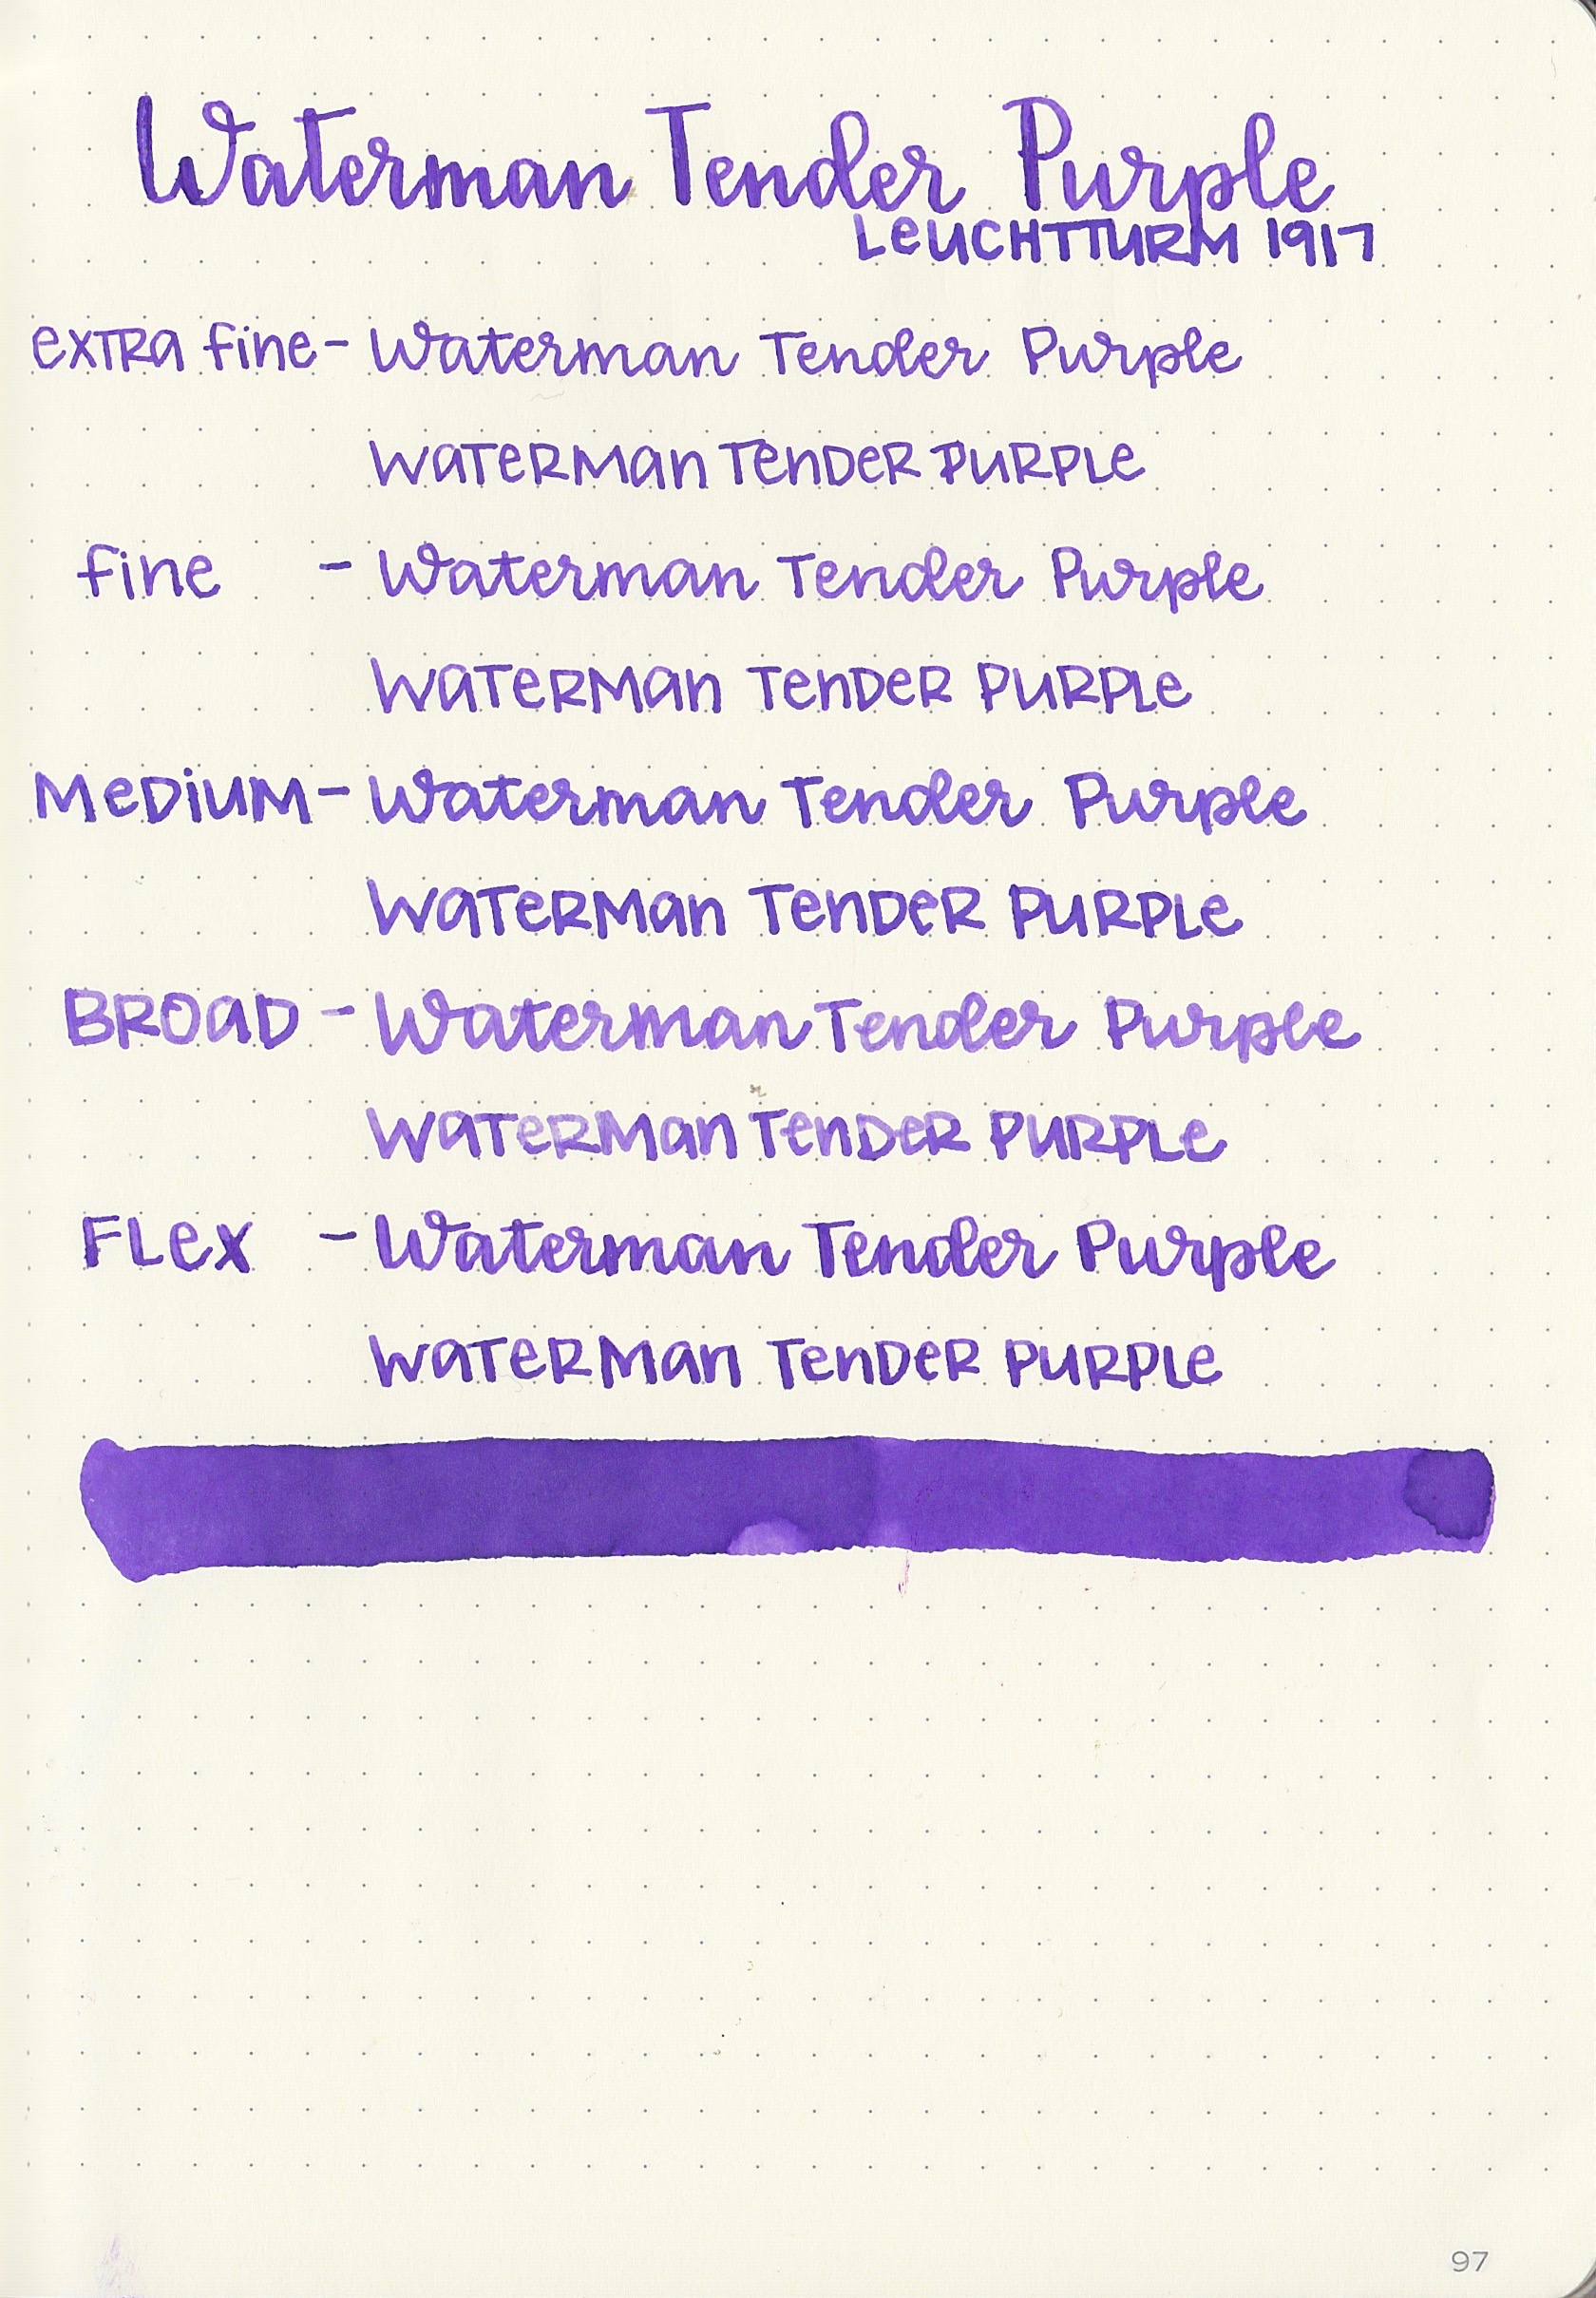 Waterman Tender Purple
LeUCHTTURM 1917
eXTRa fine - Waterman Tender Purple
WaTeRMan TenDeR PURPLe
fine - Waterman Tender Purple
WaTeRMan TenDeR PURPLe
MeDiUM - Waterman Tender Purple
WaTeRMan TenDeR PURPLe
BROaD - Waterman Tender Purple
WaTeRMan TenDeR PURPLe
FLex - Waterman Tender Purple
WaTeRMan TenDeR PURPLe
97